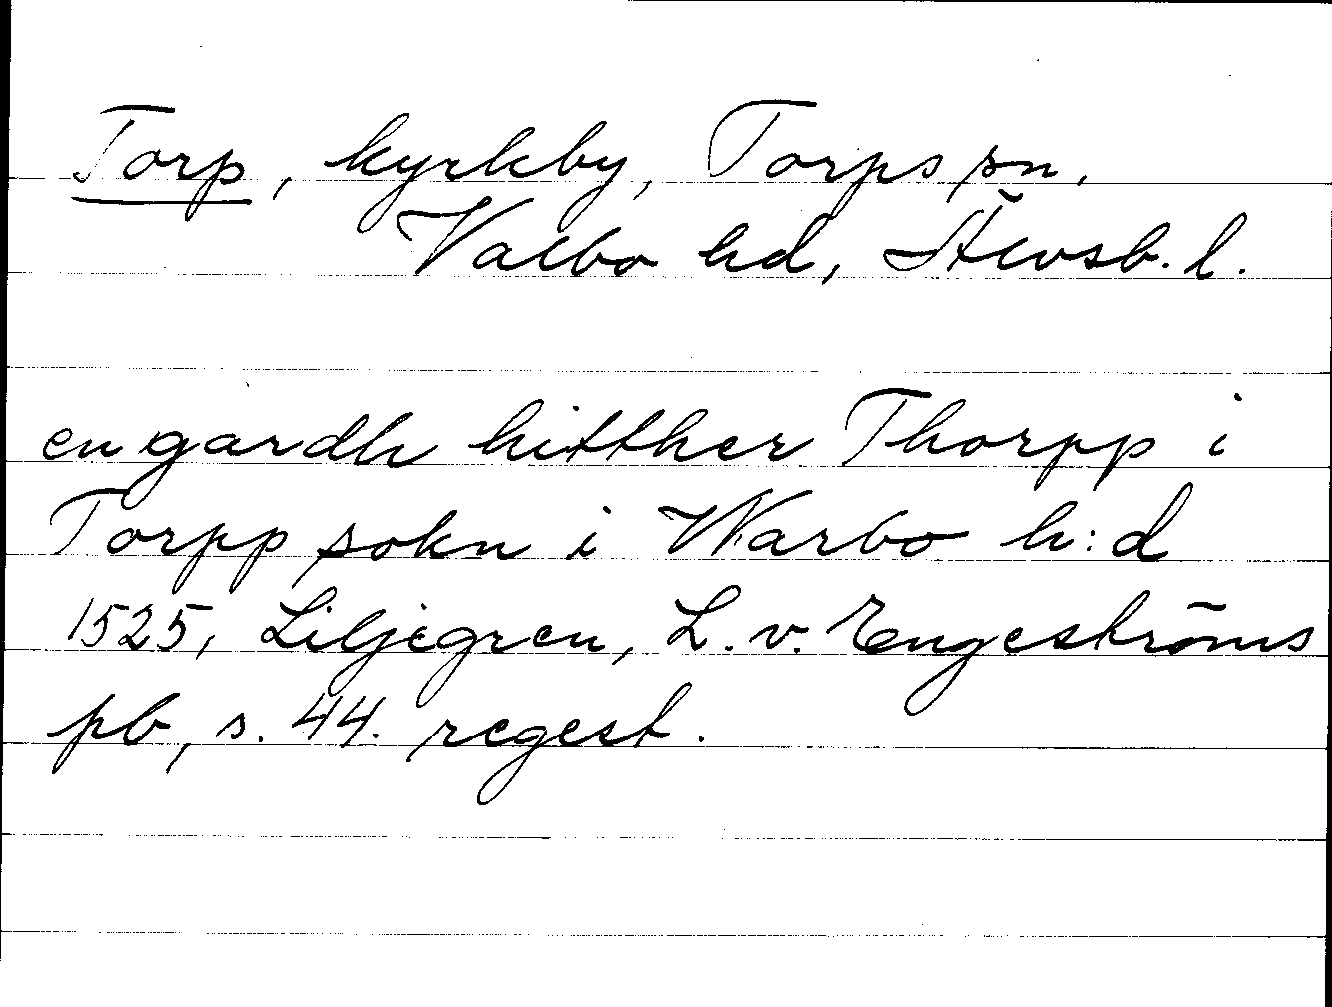 Torp, kyrkby, Torps sn,
Valbo hd, Älvsb. l.
en gardh hitther Thorpp i
Torpp sokn i Warbo h:d
1525, Liljegren, L. v. Engeströms
pb, s. 44. regest.